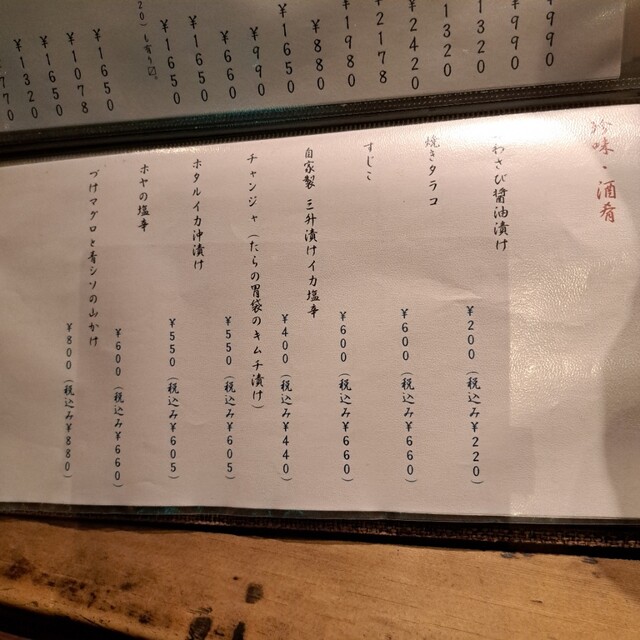 ¥990
¥990
¥1320
¥1320
¥2420
¥2178
¥1980
¥880
¥1650
¥990
¥660
¥1650
¥1650
¥1650
¥1078
¥1650
¥1320
珍味・酒肴
わさび醤油漬け ¥200(税込み¥220)
焼きタラコ ¥600(税込み¥660)
すじこ ¥600(税込み¥660)
自家製 三升漬けイカ塩辛 ¥400(税込み¥440)
チャンジャ(たらの胃袋のキムチ漬け) ¥550(税込み¥605)
ホタルイカ沖漬け ¥550(税込み¥605)
ホヤの塩辛 ¥600(税込み¥660)
づけマグロと青シソの山かけ ¥800(税込み¥880)